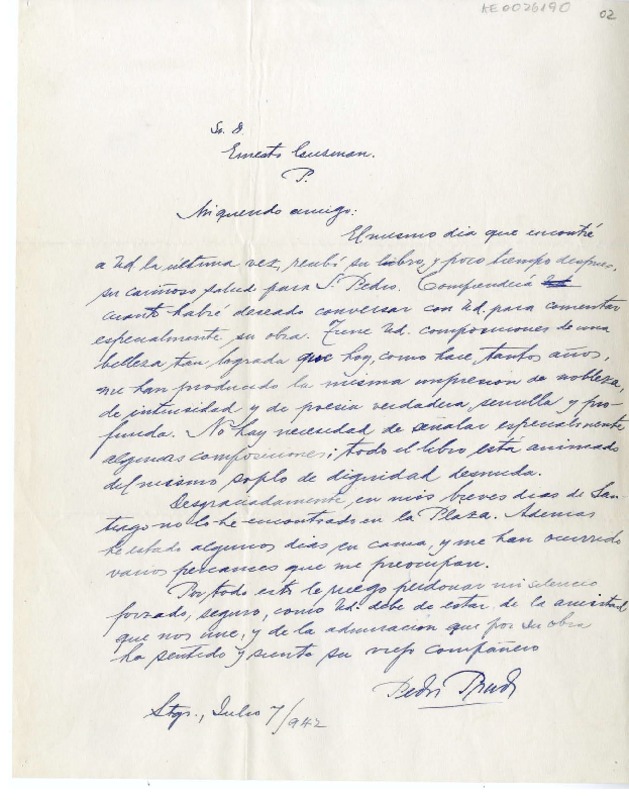 AE0026190
02
Sr. D.
Ernesto Guzman.
P.
Mi querido amigo:
El mismo dia que encontré
a Ud. la última vez, recibí su libro, y poco tiempo despues,
su cariñoso salud para S. Pedro. Comprenderá
cuanto habré deseado conversar con Ud. para comentar
especialmente su obra. Tiene Ud. composiciones de una
belleza tan lograda que hoy, como hace tantos años,
me han producido la misma impresion de nobleza,
de intensidad y de poesia verdadera, sencilla y pro-
funda. No hay necesidad de señalar especialmente
algunas composiciones; todo el libro está animado
del mismo soplo de dignidad desnuda.
Desgraciadamente, en mis breves dias de San-
tiago no lo he encontrado en la Plaza. Ademas
he estado algunos dias en cama, y me han ocurrido
varios percances que me preocupan.
Por todo esto le ruego perdonar mi silencio
forzado, seguro, como Ud. debe de estar, de la amistad
que nos une, y de la admiración que por su obra
ha sentido y siente su viejo compañero
Pedro Prado
Stgo., Julio 7/942